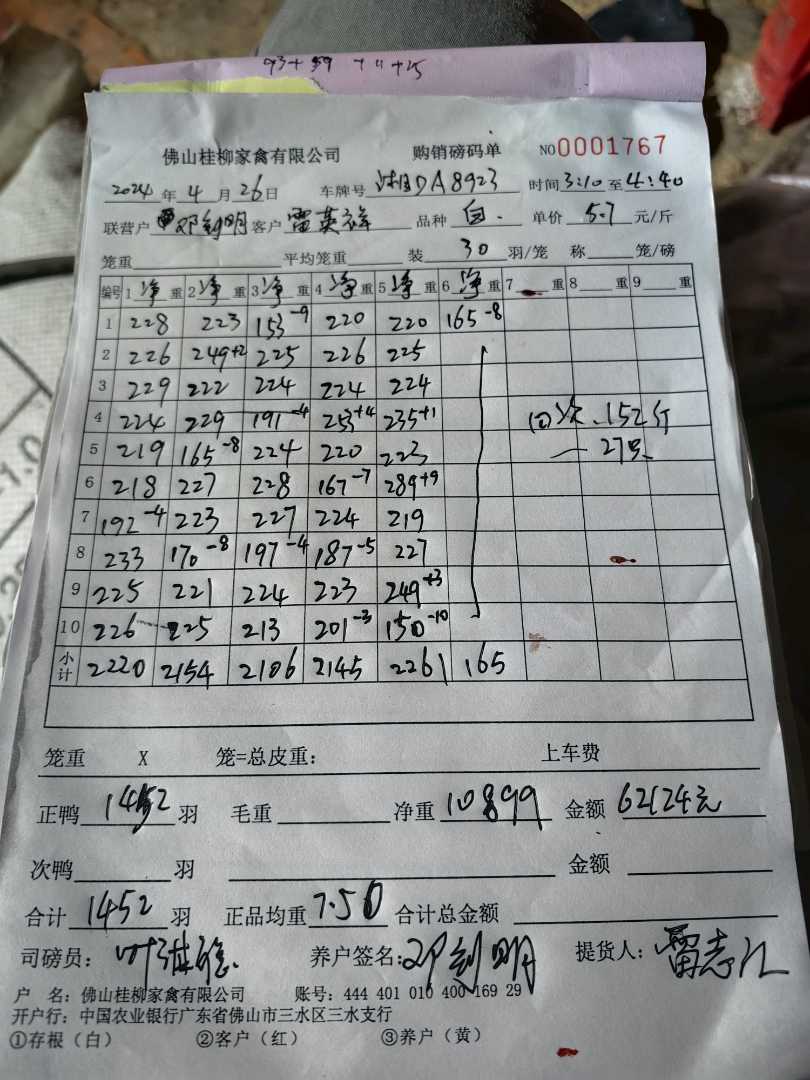 93+59 +11+15
佛山桂柳家禽有限公司 购销磅码单 NO0001767
2024年4月26日 车牌号DA8923 时间3:10至4:40
联营户邓剑明 客户雷英祥 品种白. 单价5.7元/斤
笼重 平均笼重 装30羽/笼 称 笼/磅
编号 1净重 2净重 3净重 4净重 5净重 6净重 7 重 8 重 9 重
1 228 223 153-9 220 220 165-8
2 226 249+2 225 226 225
3 229 222 224 224 224
4 224 229 191-4 253+4 235+1 次.152斤
5 219 165-8 224 220 223 27只
6 218 227 228 167-7 289+9
7 192-4 223 227 224 219
8 233 170-8 197-4 187-5 227
9 225 221 224 223 249+3
10 226 225 213 201-3 150-10
小计 2220 2154 2106 2145 2261 165
笼重 X 笼=总皮重: 上车费
正鸭1452羽 毛重 净重10899 金额62124元
次鸭 羽 金额
合计1452羽 正品均重7.50 合计总金额
司磅员: 叶 养户签名:邓剑明 提货人:雷志江
户 名: 佛山桂柳家禽有限公司 账号: 444 401 010 400 169 29
开户行: 中国农业银行广东省佛山市三水区三水支行
①存根(白) ②客户(红) ③养户(黄)